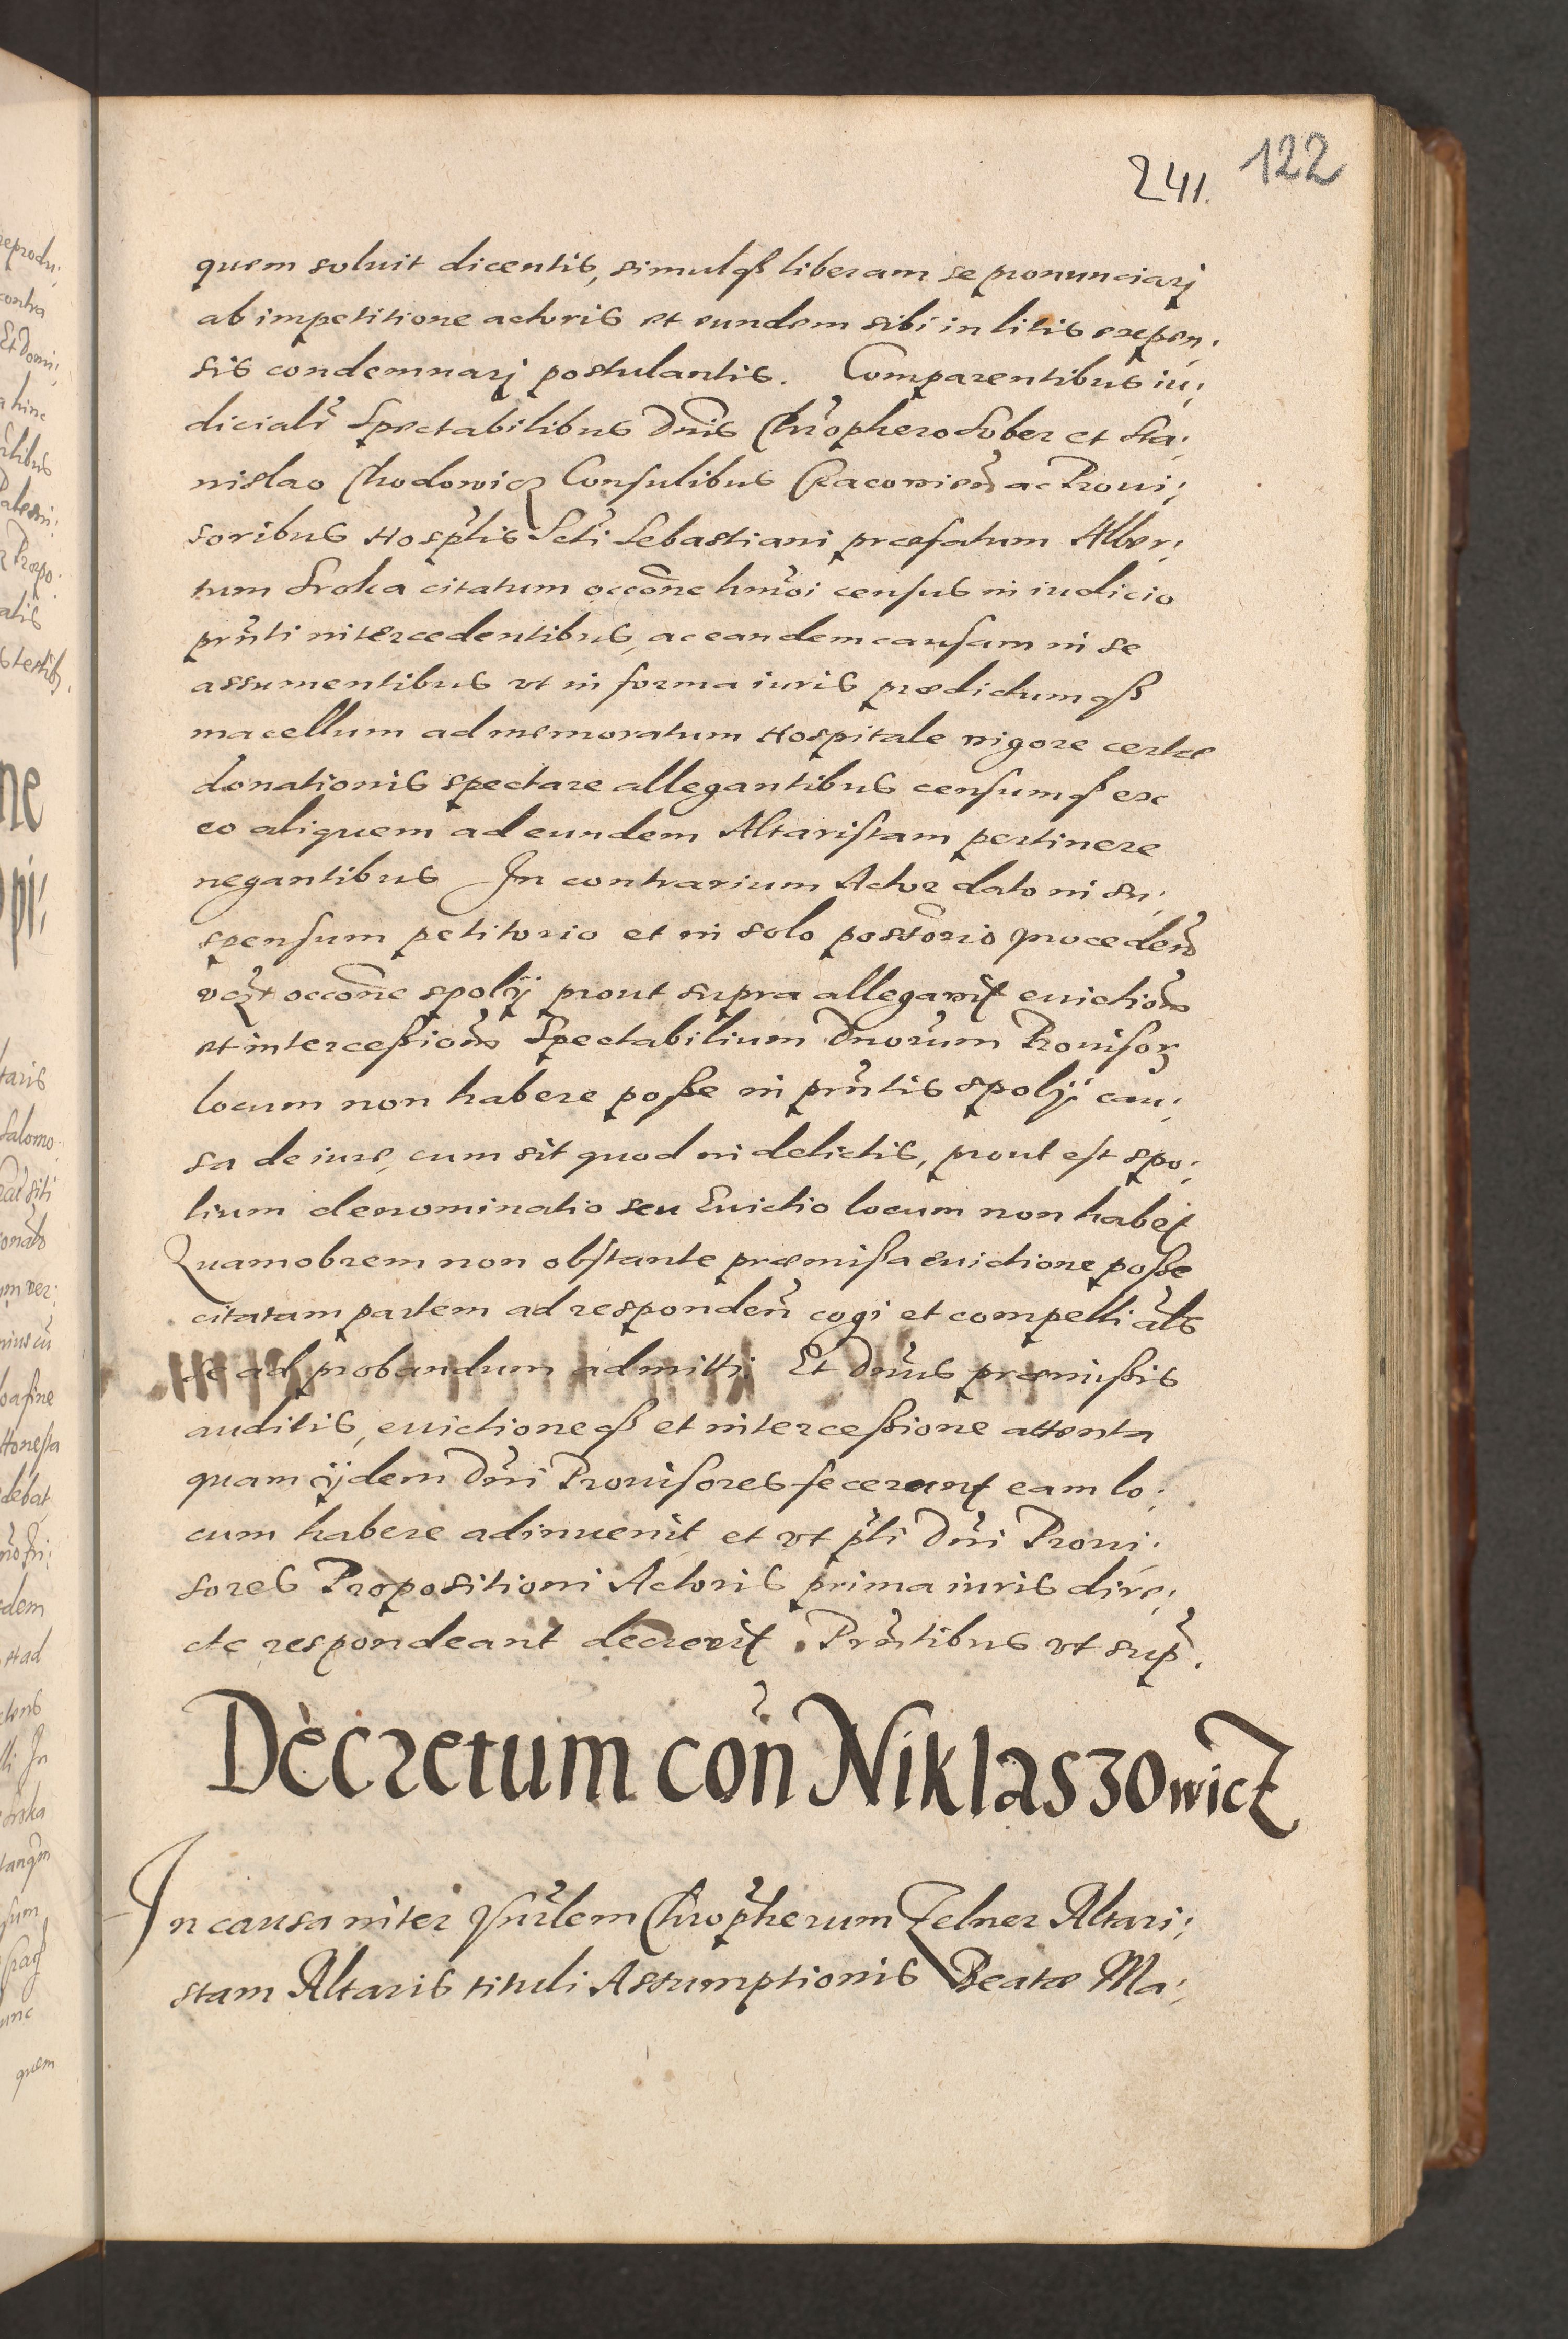 122
241.
quem soluit dicentis, simulqß liberam se pronunciarj
ab impetitione actoris et eundem sibi in litis expen,
sis condemnarj postulantis. Comparentibus iu,
diciali̾ Spectabilibus Dn̄is Chr̄ophero Sober et Sta,
nislao Chodowicz Consulibus Cracovien̄ ac Proui,
soribus Hosp̄tlis Scti̾ Sebastiani præfatum Alber,
tum Sroka citatum occōne hm̄oi census in iudicio
prn̄ti intercedentibus, ac eandem causam in se
assumentibus vt in forma iuris prædictumqß
macellum ad memoratum Hospitale vigore certæ
donationis spectare allegantibus censumqß ex
eo aliquem ad eundem Altaristam pertinere
negantibus In contrarium Actor dato in su,
spensum petitorio et in solo possōrio proceden̄
vcz̄t occōne spolij prout supra allegavit evictiōn
et intercessiōn Spectabilium Dnōrum Prouisorꝝ
locum non habere posse in prn̄tis spolij cau,
sa de iure, cum sit quod in delictis, prout est spo,
lium denominatio seu Euictio locum non habet
Quamobrem non obstante præmissa euictione posse
citatam partem ad responden̄ cogi et compelli al̄s
se ad probandum admitti. Et Dn̄us præmissis
auditis, euictioneqß et intercessione attenta
quam ijdem Dn̄i Prouisores fecerunt eam lo,
cum habere adinuenit et vt p̄ti Dn̄i Proui,
sores Propositioni Actoris prima iuris dire,
cte respondeant decrevit. Prn̄tibus vt sup̄.
Decretum con̄ Niklaszowicz
In causa inter Vn̄rlem Chrōpherum Zelner Altari,
stam Altaris tituli Assumptionis Beatæ Ma,